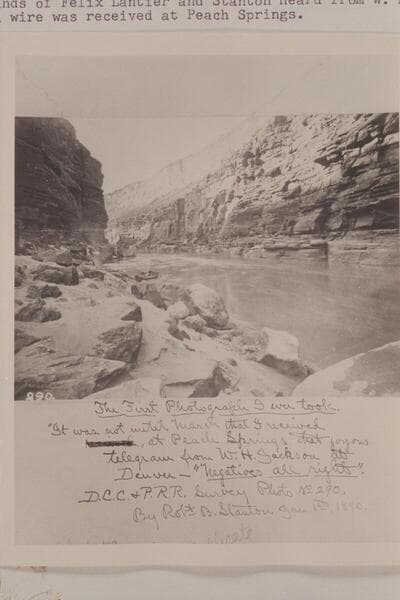 nds of Felix Lantier and Stanton heard from W.
wire was received at Peach Springs.
290
The First Photograph I ever took.
"It was not until March that I received
, at Peach Springs that joyous
telegram from W. H. Jackson at
Denver — "Negatives all right".
D.C.C. & P.R.R. Survey Photo No 290.
By Robt B. Stanton Jan 1st, 1890.